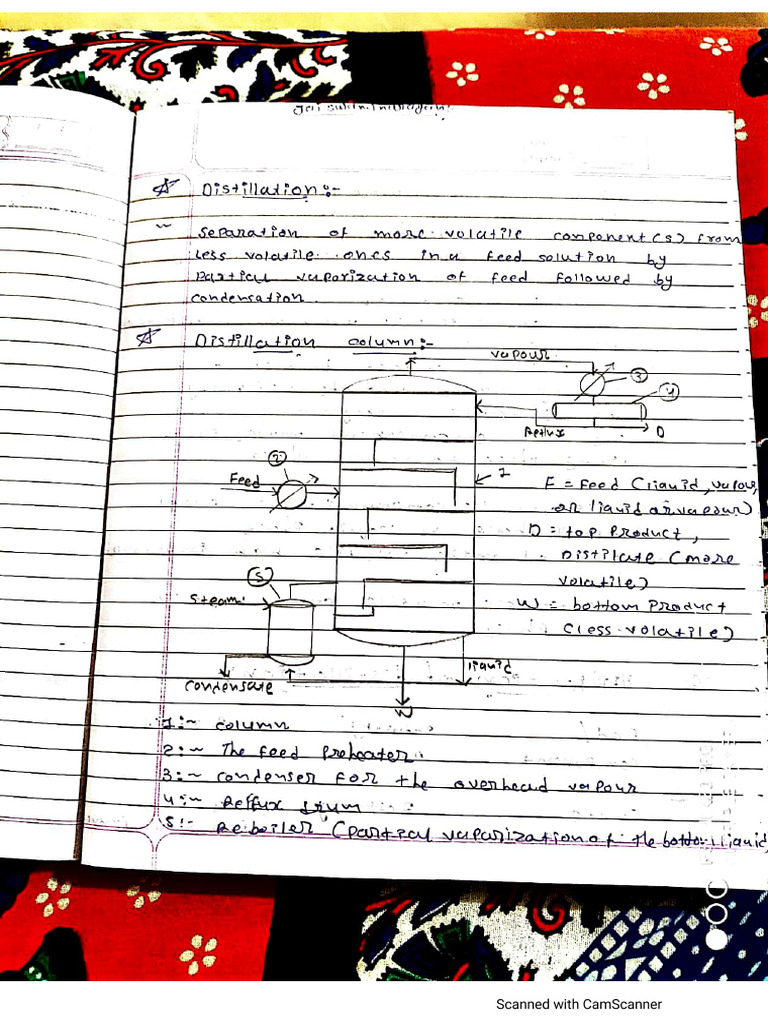 Distillation:-
~ separation of more volatile component(s) from
less volatile ones in a feed solution by
partial vaporization of feed followed by
condensation.
Distillation column:-
vapour
3
4
Reflux
D
2
Feed
1
F = Feed (liquid, vapour,
or liquid or vapour)
D = top product,
Distillate (more
volatile)
W = bottom product
(less volatile)
5
Steam
liquid
condensate
W
1:~ column
2:~ The feed preheater.
3:~ condenser for the overhead vapour
4:~ Reflux drum
5:- Reboiler (partial vaporization of the bottom liquid
Scanned with CamScanner